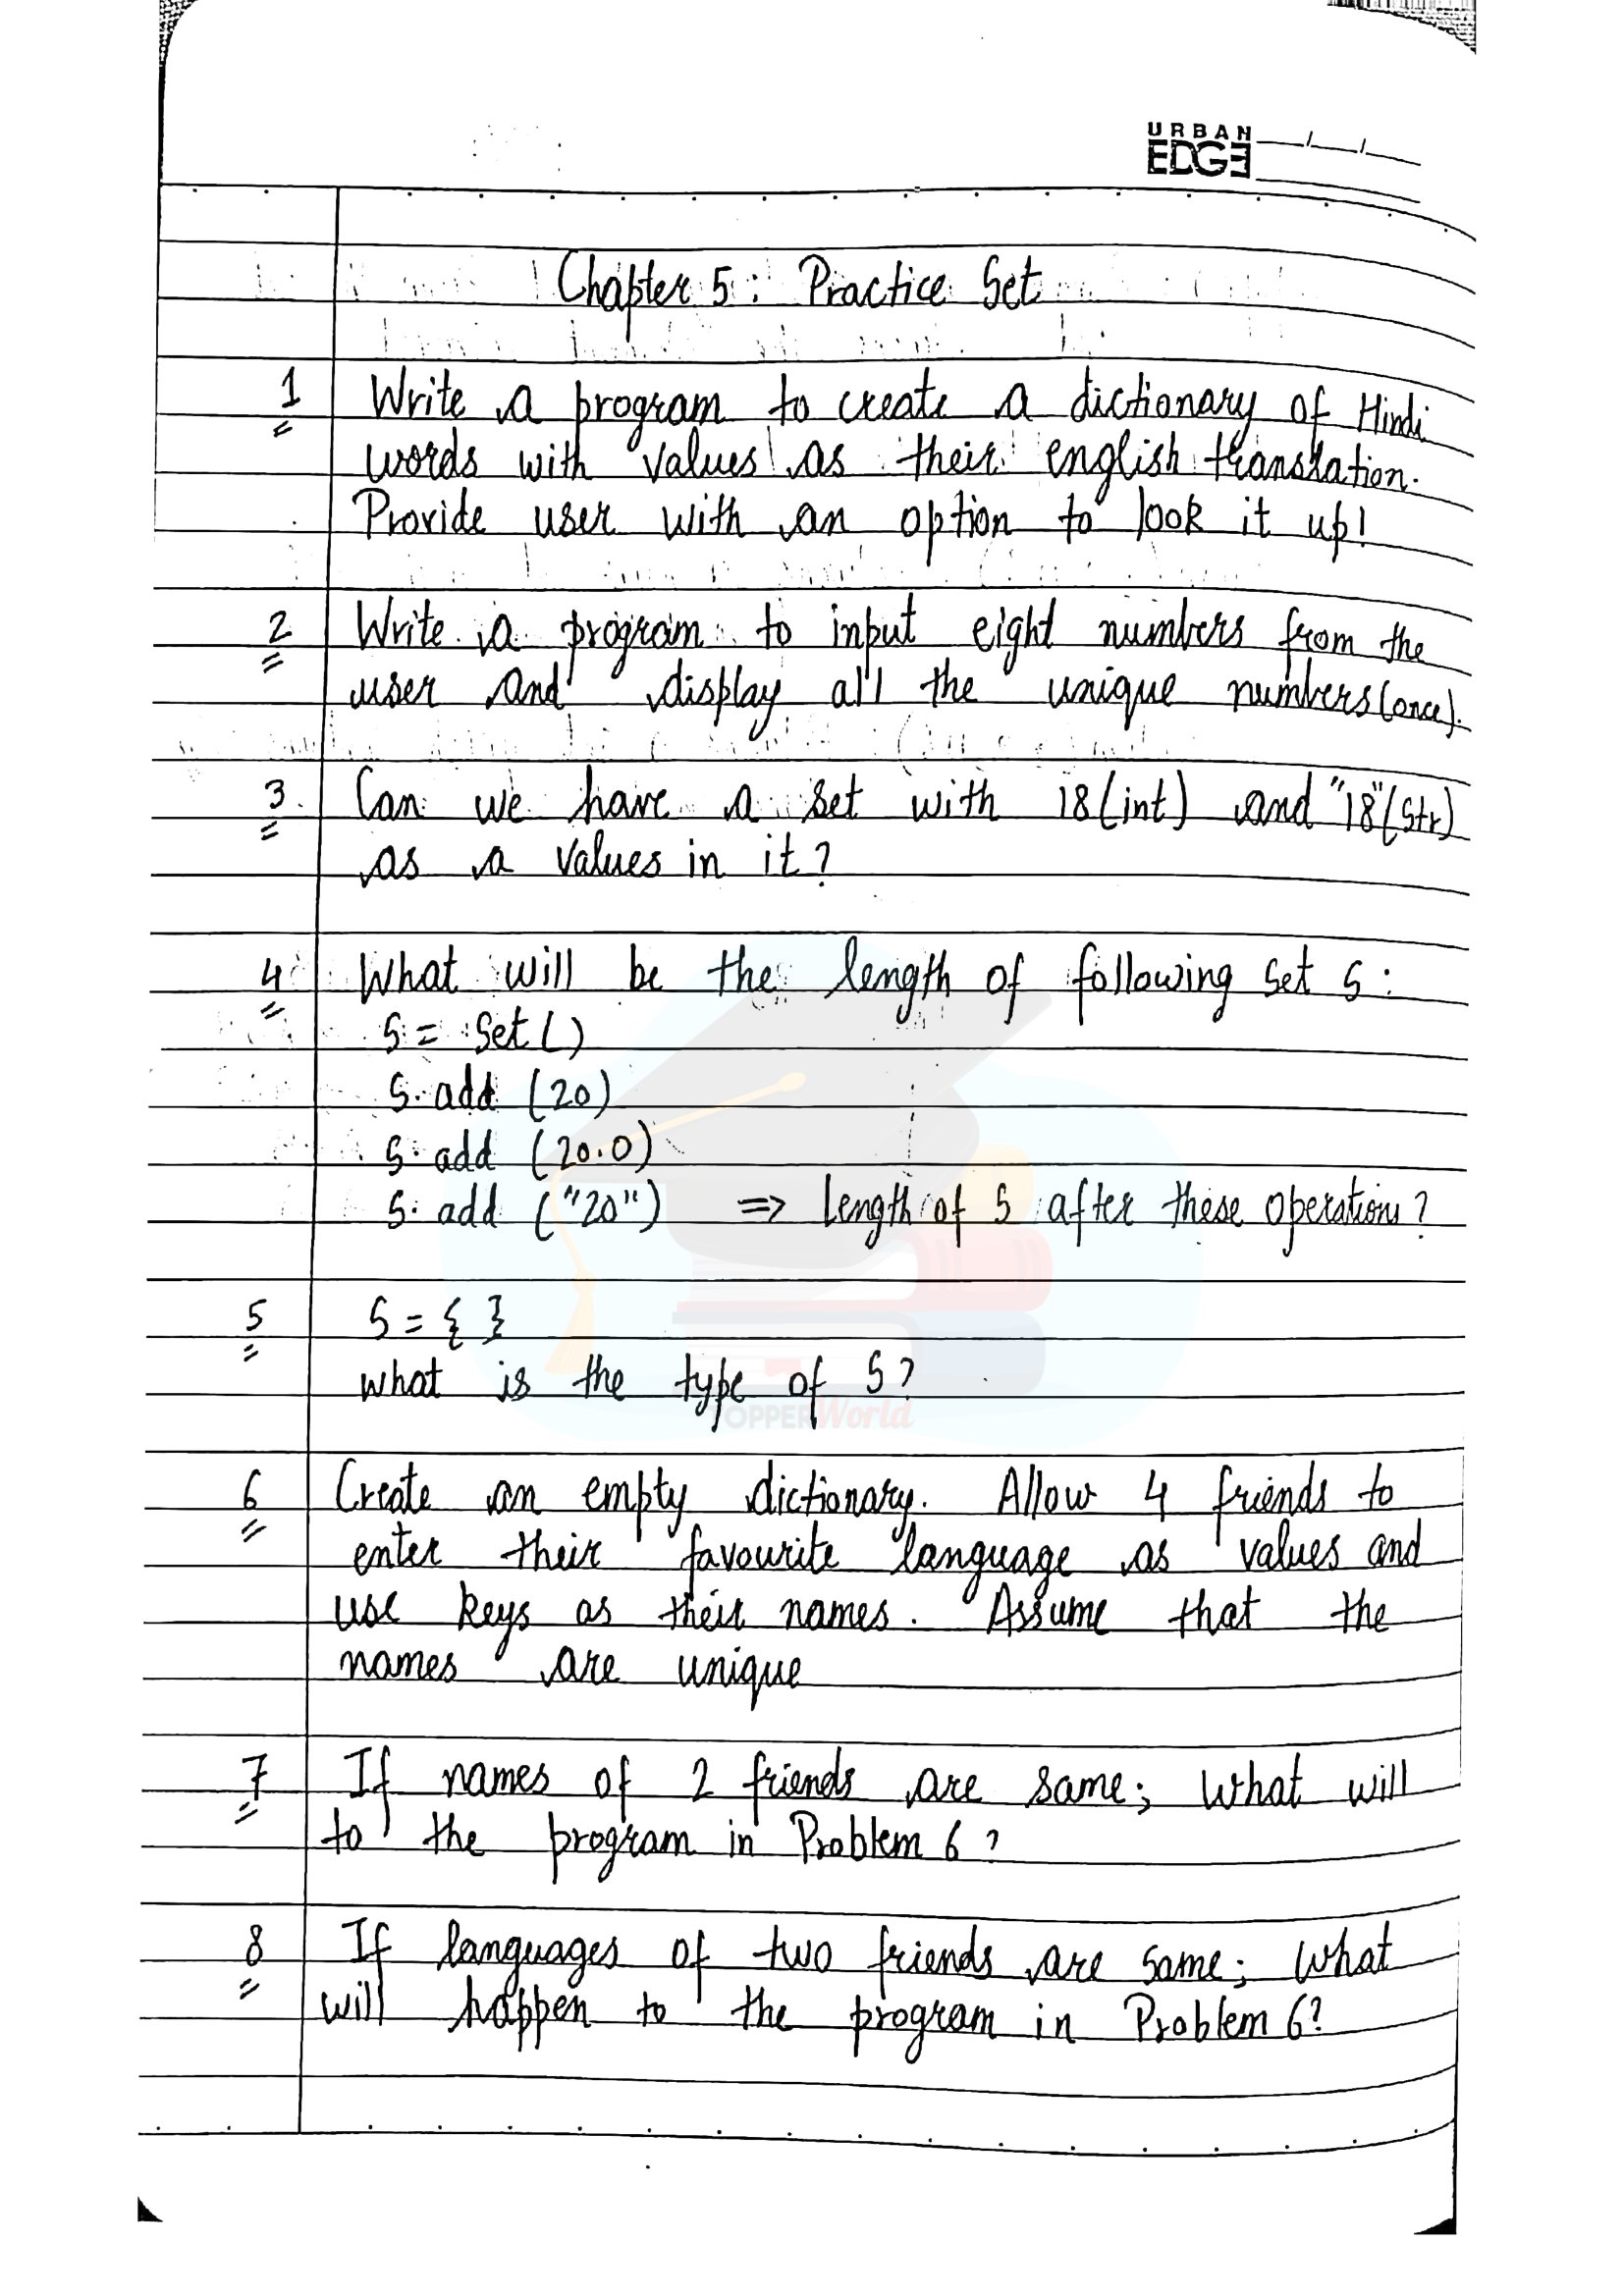 URBAN
EDGE
Chapter 5: Practice Set
1 Write a program to create a dictionary of Hindi
words with values as their english translation.
Provide user with an option to look it up!
2 Write a program to input eight numbers from the
user and display all the unique numbers (once).
3. Can we have a set with 18(int) and "18"(str)
as a values in it?
4 What will be the length of following set S:
S = Set()
S. add (20)
S. add (20.0)
S. add ("20") => length of S after these operations?
5 S = { }
what is the type of S?
TOPPERWorld
6 Create an empty dictionary. Allow 4 friends to
enter their favourite language as values and
use keys as their names. Assume that the
names are unique
7 If names of 2 friends are same; what will
to the program in Problem 6?
8 If languages of two friends are same; what
will happen to the program in Problem 6?